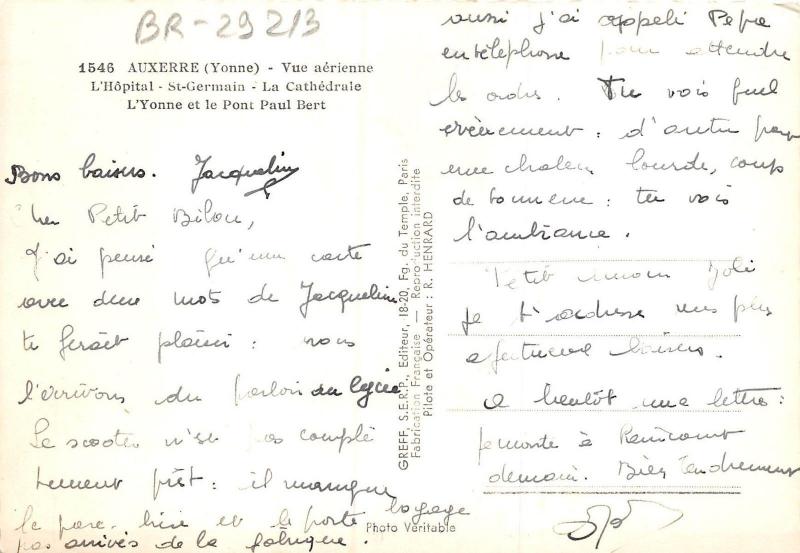 BR-29213
1546 AUXERRE (Yonne) - Vue aérienne
L'Hôpital - St-Germain - La Cathédrale
L'Yonne et le Pont Paul Bert
Bons baisers. Jacquelin
Petit Bilou,
J'ai pensé qu'une carte
avec deux mots de Jacquelin
te ferait plaisir : nous
l'écrivons du parloir du lycée
Le scooter n'est pas complè
tement prêt : il manque
le pare-brise et le porte bagage
pas arrivés de la fabrique.
GREFF, S.E.R.P., Editeur, 18-20, Fg. du Temple, Paris
Fabrication Française — Reproduction interdite
Pilote et Opérateur : R. HENRARD
Photo Véritable
aussi j'ai appelé
en téléphone pour attendre
les ordres. Tu vois quel
: d'autre part
une chaleur lourde, coups
de tonnerre : tu vois
l'ambiance.
Petit joli
je t'adresse mes plus
affectueux baisers.
A bientôt une lettre :
je monte à
demain. Bien tendrement